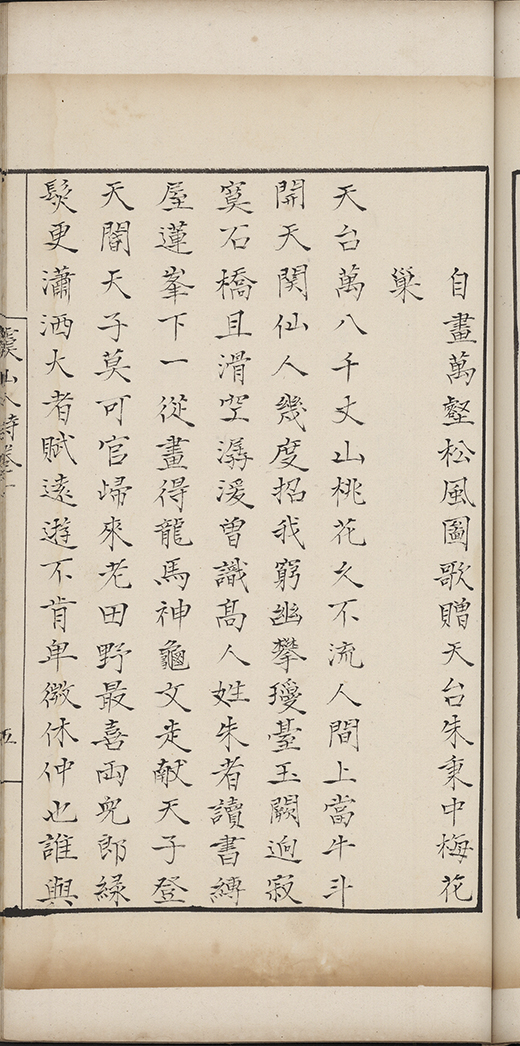 自畫萬壑松風圖歌贈天台朱秉中梅花
巢
天台萬八千丈山桃花久不流人間上當牛斗
開天関仙人幾度招我窮幽攀瓊臺玉闕迥寂
寞石橋且滑空潺湲曽識髙人姓朱者讀書縛
屋蓮峯下一從畫得龍馬神龜文走献天子登
天閽天子莫可官歸來老田野最喜兩兒郎綠
鬂更瀟洒大者賦遠遊不肯卑微休仲也誰與
山人詩卷
五